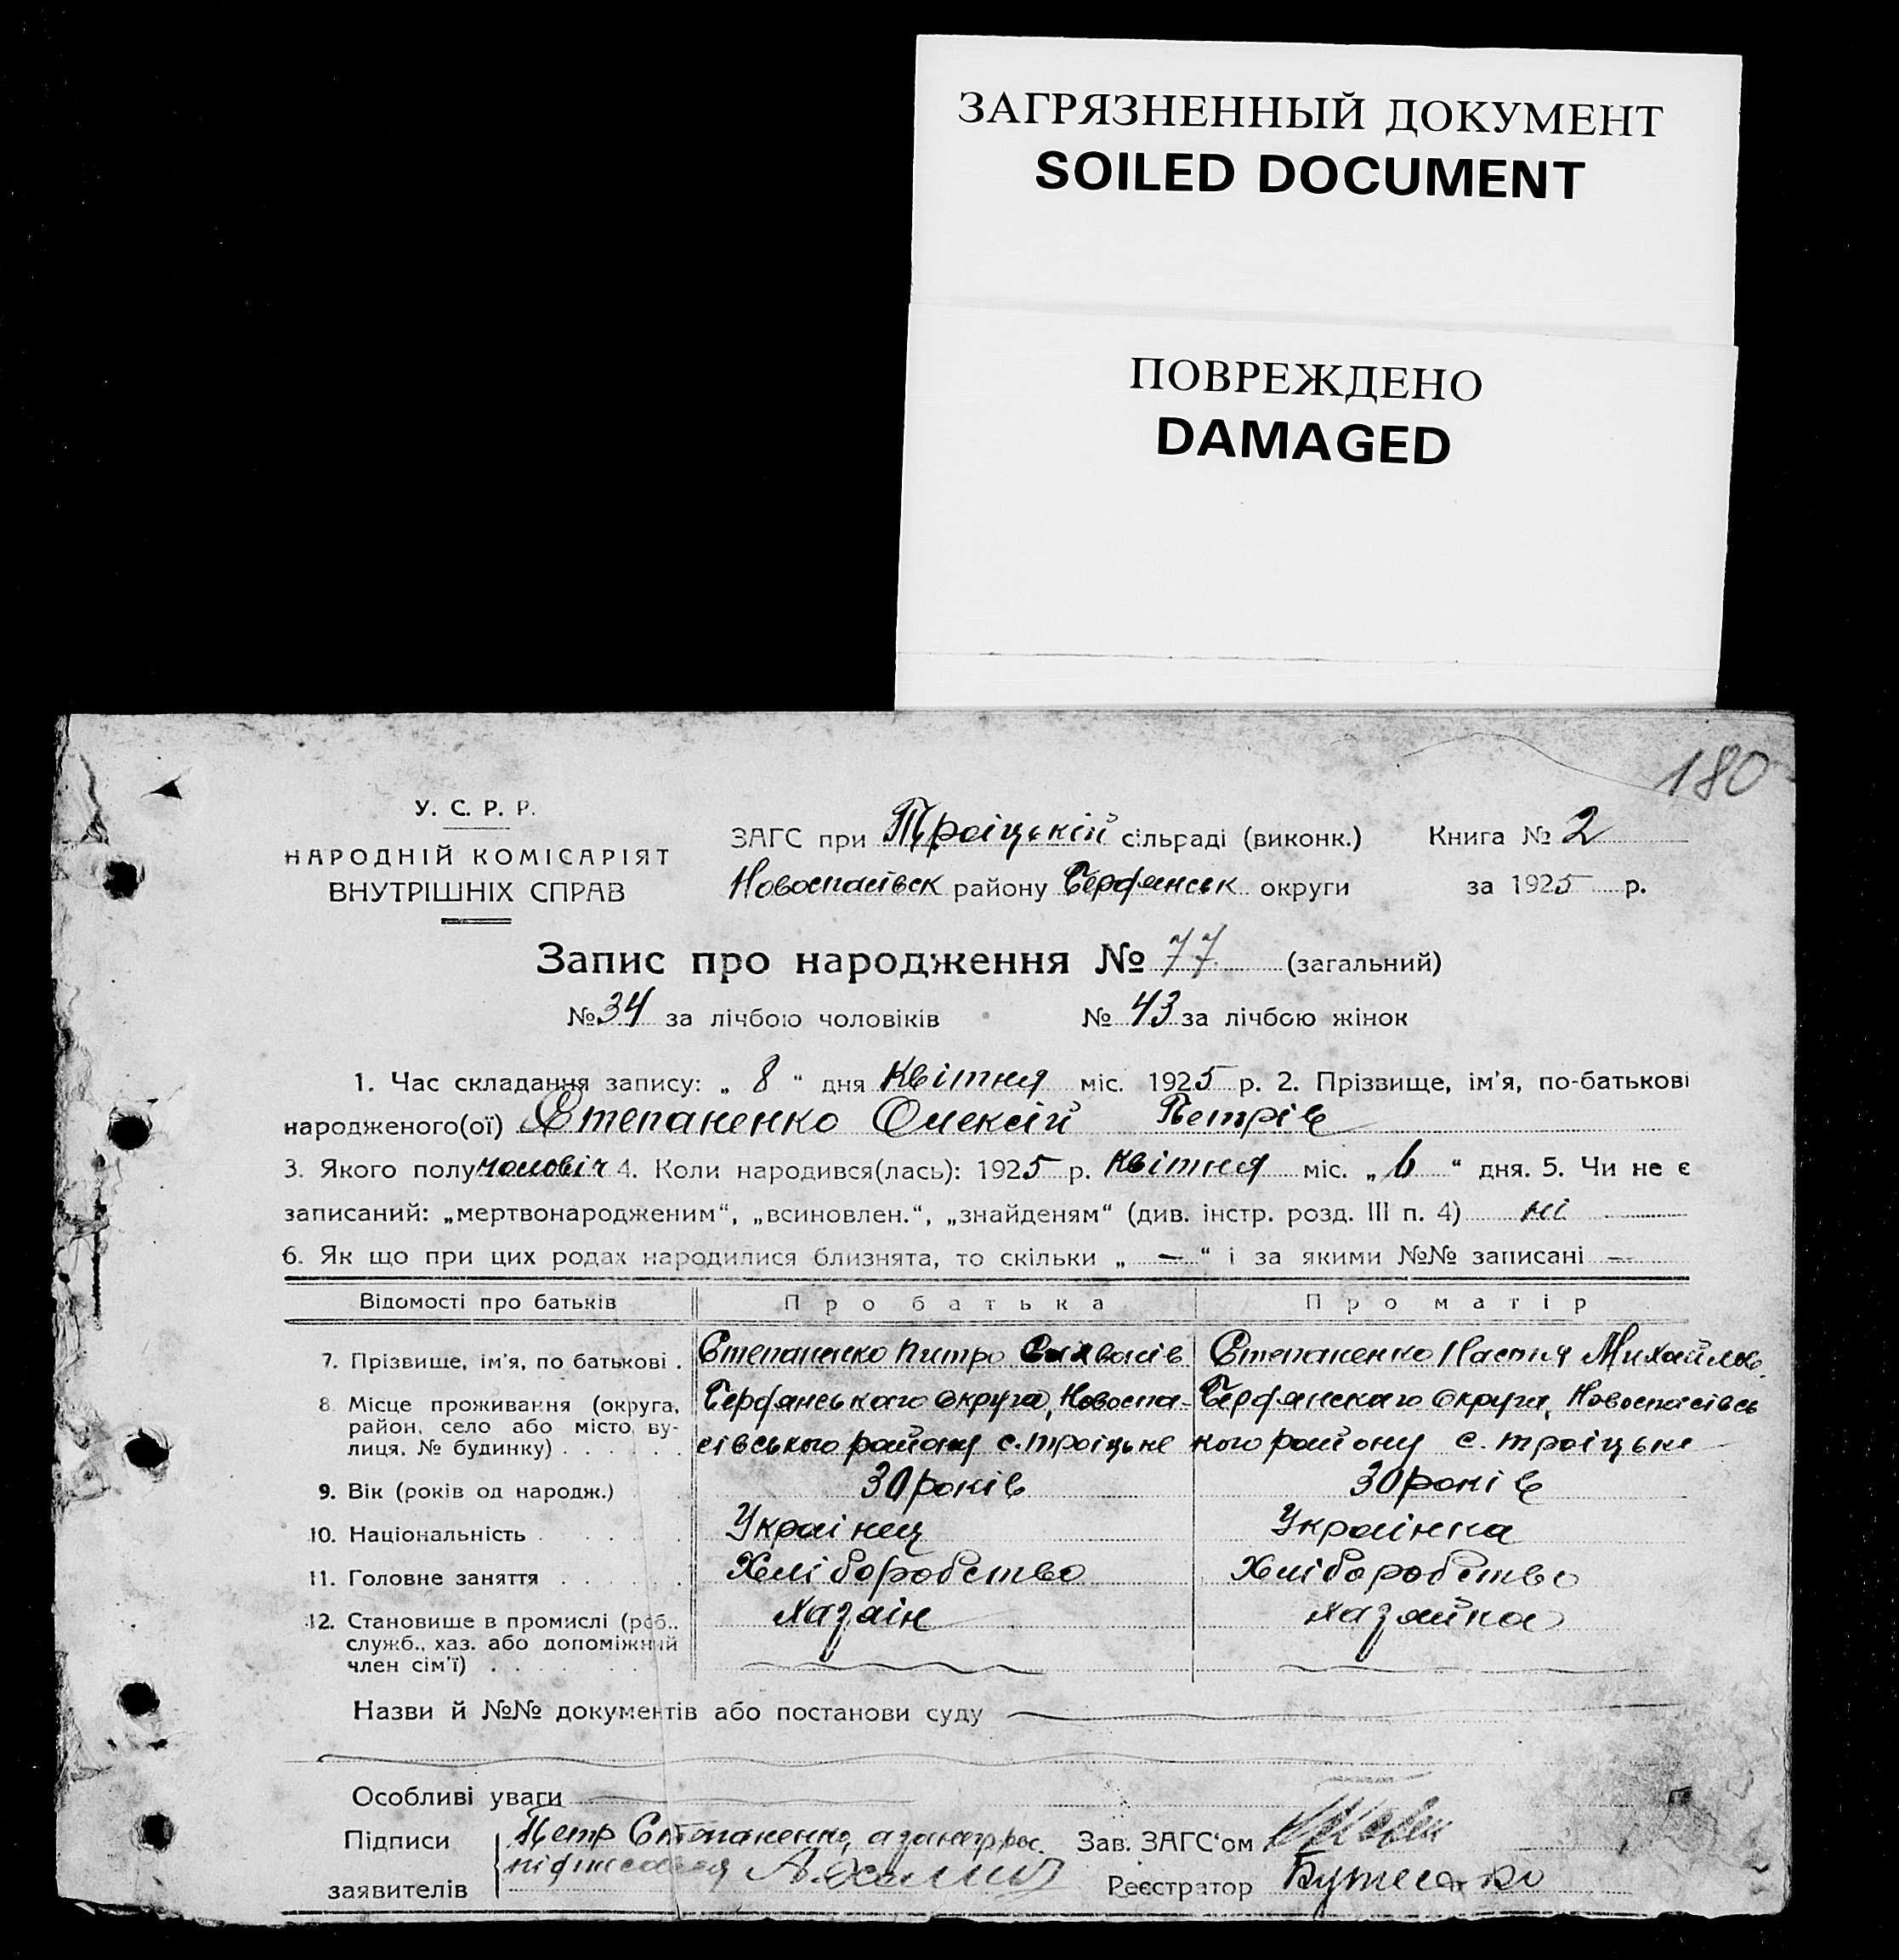 ЗАГРЯЗНЕННЫЙ ДОКУМЕНТ
SOILED DOCUMENT
ПОВРЕЖДЕНО
DAMAGED
180
У. С. Р. Р.
НАРОДНІЙ КОМІСАРІЯТ
ВНУТРІШНІХ СПРАВ
ЗАГС при Троіцькій сільраді (виконк.) Книга № 2
Новоспасівськ району Бердянськ округи за 1925 р.
Запис про народження № 77 (загальний)
№ 34 за лічбою чоловіків № 43 за лічбою жінок
1. Час складання запису: „ 8 “ дня квітня міс. 1925 р. 2. Прізвище, ім'я, по-батькові
народженого(ої) Степаненко Олексій Петрів
3. Якого полу чоловіч 4. Коли народився(лась): 1925 р. квітня міс. „ 6 “ дня. 5. Чи не є
записаний: „мертвонародженим“, „всиновлен.“, „знайденям“ (див. інстр. розд. III п. 4) ні
6. Як що при цих родах народилися близнята, то скільки „ — “ і за якими №№ записані —
Відомості про батьків Про батька Про матір
7. Прізвище, ім'я, по батькові . Степаненко Питро Степаненко Настя Михайлов.
8. Місце проживання (округа, Бердянського округа, Новоспа- Бердянскаго округа, Новоспасівсь
район, село або місто, ву-
лиця, № будинку) . . . . . сівського району с. Троіцьке кого району с. Троіцьке
9. Вік (років од народж.) 30 років 30 років
10. Національність . . . . Украінец Украінка
11. Головне заняття . . . . . . Хліборобство Хліборобство
12. Становище в промислі (роб., хазаін хазяйка
служб., хаз. або допоміжний
член сім'ї) . . . . .
Назви й №№ документів або постанови суду
Особливі уваги
Підписи Петр Степаненко, а за негр. рос. Зав. ЗАГС'ом
заявителів Реєстратор